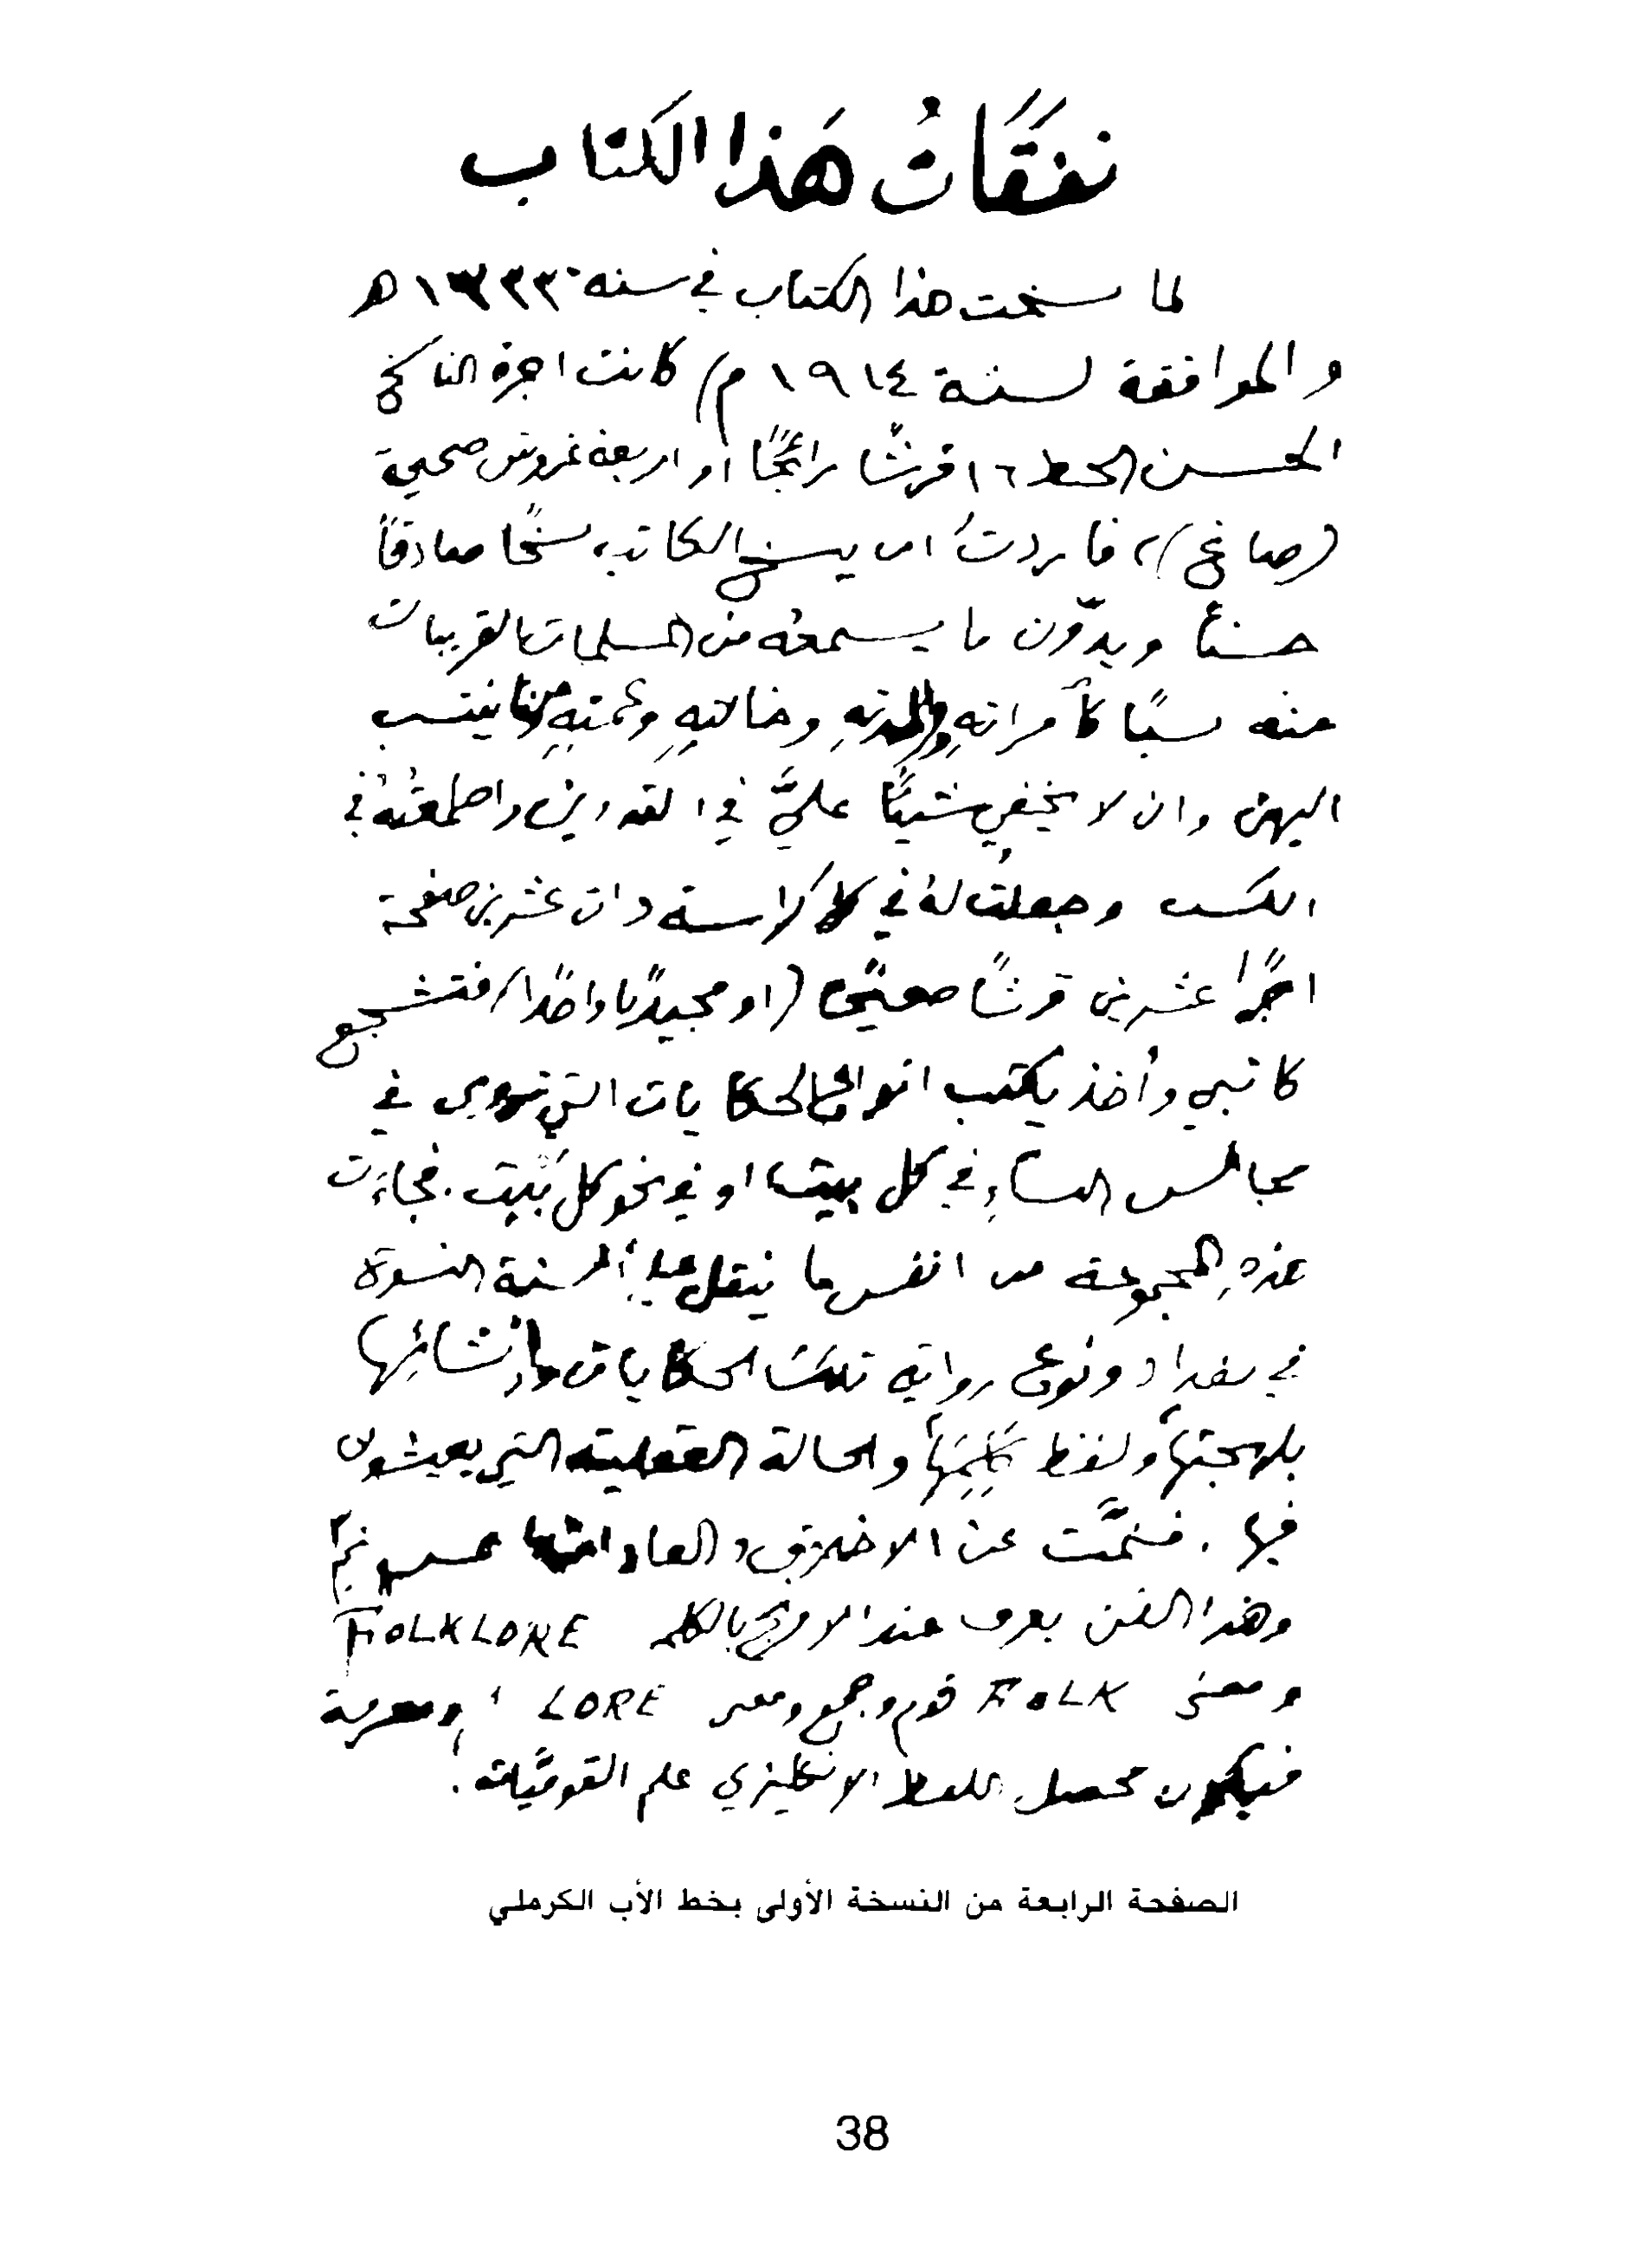 نفقَاتُ هَذا الكتاب
لما نسخت هذا الكتاب في سنة ١٣٣٣ هـ
والموافقة لسنة ١٩١٤ م) كانت اجرة الناسخ
الحسن الخط ١٦ قرشًا رائجًا او اربعة غروش صحيحة
(صاغ)، فاردتُ ان ينسخ الكاتب نسخًا صادقًا
حسنًا ويدوّن ما يسمعه من المسلمات القريبات
منه نسبًا كأمراته ووالدتهِ وخالتهِ وعمتهِ ينتسب
اليهن وان لا يخفي شيئًا عليَّ في التدوين واطمعتُهُ في
الكسب وجعلت لهُ في كل كراسة ذات عشرين صفحة
اجرًا عشرين قرشًا صحيحًا (او مجيديًا واحدًا) فتشجع
كاتبي وأخذ يكتب انواع الحكايات التي تروى في
مجالس النساءِ في كل بيت او في نحو كل بيت. فجاءت
هذهِ المجموعة من انفس ما ينقل على ألسنة النسوة
في بغداد ونوع رواية تلك الحكايات وإنشائها
بلهجتها ولفظ كَلِمِهَا والحالة العقلية التي يعيشون
فيها. فنمَّت عن الاخلاق والعادات
وهذا الفن يعرف عند الافرنج بالكلمة FOLKLORE
ومعنى FOLK قوم وجمع ومعنى LORE ، ومعرفة
فيكون محصل اللفظ الانكليزي علم القوميَّات.
الصفحة الرابعة من النسخة الأولى بخط الأب الكرملي
38